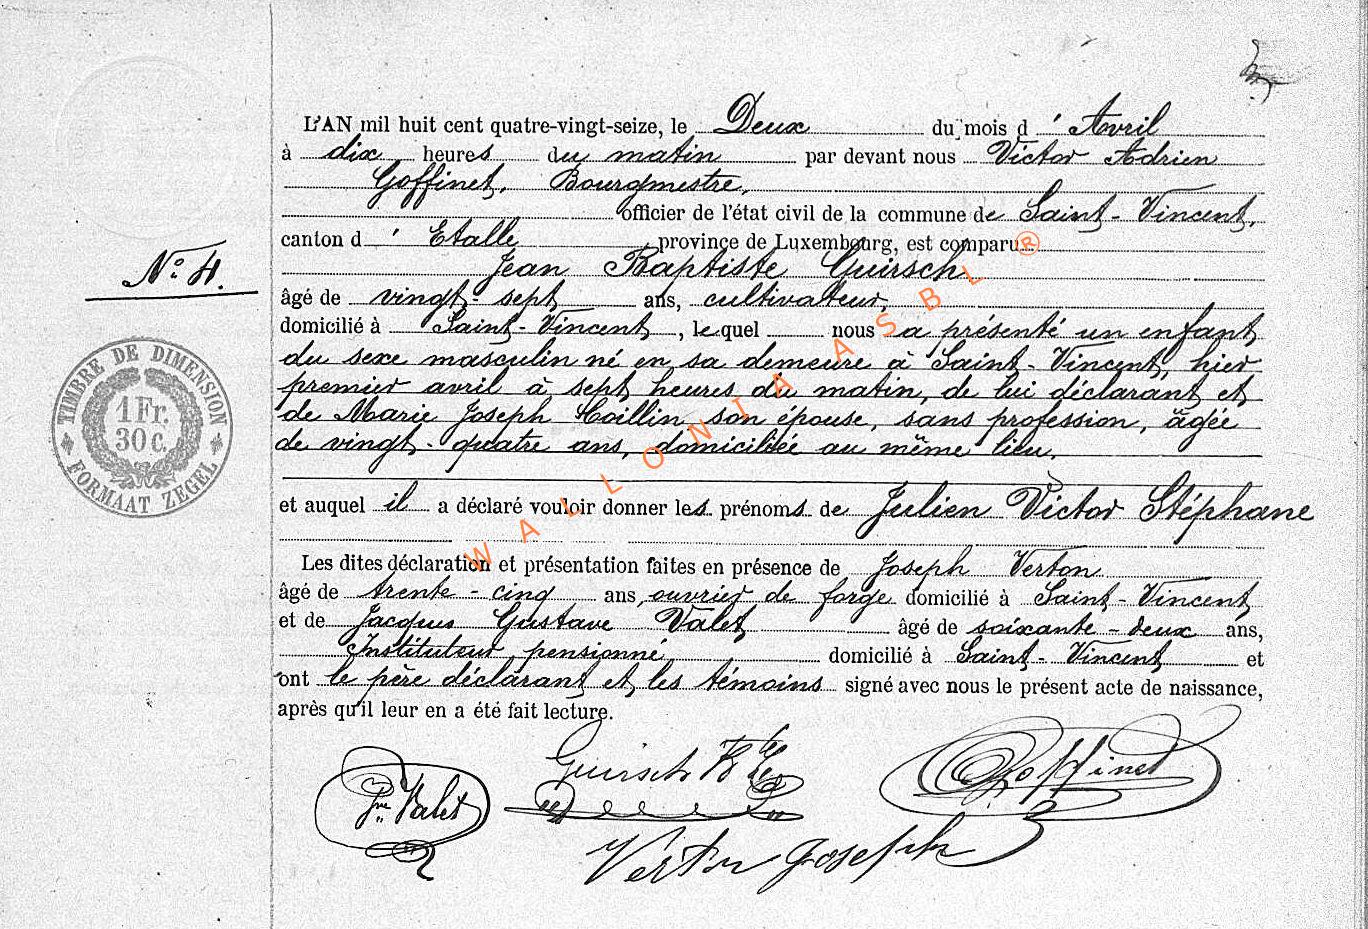 L'AN mil huit cent quatre-vingt-seize, le Deux du mois d' Avril
à dix heures du matin par devant nous Victor Adrien
Goffinet, Bourgmestre,
officier de l'état civil de la commune de Saint-Vincent,
canton d' Etalle province de Luxembourg, est comparu
Jean Baptiste Guirsch
N° 4.
âgé de vingt-sept ans, cultivateur,
domicilié à Saint-Vincent, lequel nous a présenté un enfant
du sexe masculin né en sa demeure à Saint-Vincent, hier
premier avril à sept heures du matin, de lui déclarant et
de Marie Joseph son épouse, sans profession, âgée
de vingt-quatre ans, domiciliée au même lieu.
TIMBRE DE DIMENSION
1 Fr.
30 c.
FORMAAT ZEGEL
et auquel il a déclaré vouloir donner les prénoms de Julien Victor Stéphane
Les dites déclaration et présentation faites en présence de Joseph Verton
âgé de trente-cinq ans, ouvrier de forge domicilié à Saint-Vincent
et de Jacques Gustave Valet âgé de soixante-deux ans,
Instituteur pensionné domicilié à Saint-Vincent et
ont le père déclarant et les témoins signé avec nous le présent acte de naissance,
après qu'il leur en a été fait lecture.
WALLONIA ASBL ®
Guirsch
Goffinet
Valet
Verton Joseph